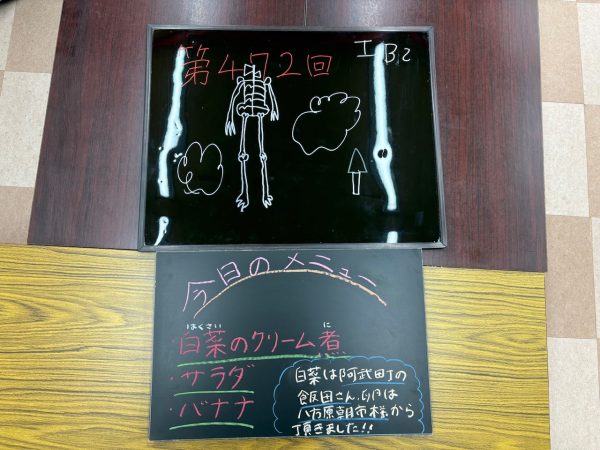 第472回
今日のメニュー
はくさい に
・白菜のクリーム煮
・サラダ
・バナナ
白菜は阿武町の
飯田さん、卵は
八市原朝市様から
頂きました!!